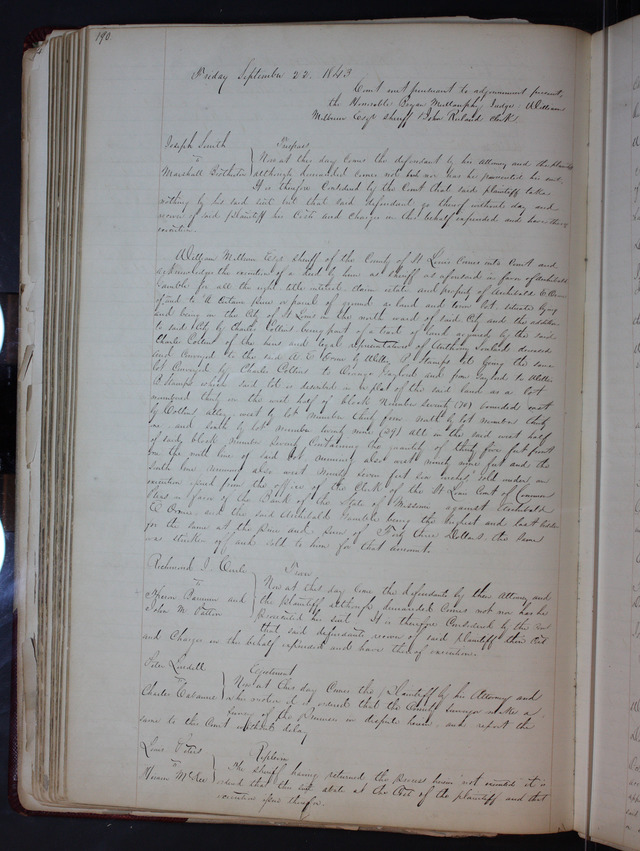 190
Friday September 22. 1843
Court met pursuant to adjournment present,
the Honorable Bryan Mullanphy Judge, William
Milburn Esqr Sheriff & John Ruland clerk.
Joseph Smith
vs
Marshall Brotherton
Trespass
Now at this day Comes the defendant by his Attorney and the plaintiff
although demanded comes not nor has he prosecuted his suit.
It is therefore Considered by the Court that said plaintiff take
nothing by his said suit but that said defendant go thereof without day and
recover of said plaintiff his Costs and Charges in this behalf expended and have thereof
execution.
William Milburn Esqr Sheriff of the County of St Louis Comes into Court and
acknowledges the execution of a deed by him as sheriff as aforesaid in favor of Archibald
Gamble for all the right title interest claim estate and property of Archibald E Orme
of and to A Certain piece or parcel of ground or land and town lot, situate lying
and being in the City of St Louis in the north ward of said City and the addition
to said City by Charles Collins being part of a tract of land acquired by the said
Charles Collins of the heirs and legal representatives of Anthony Soulard deceased
and Conveyed to the said A E Orme by Wally P Stamps being the same
lot Conveyed by Charles Collins to Orange Gaylord and from Gaylord to
P Stamps which said lot is described in a plat of the said land as a lot
numbered thirty in the west half of block Number Seventy (70) bounded east
by Collins alley, west by lot Number thirty four north by lot number thirty
one and south by lot number twenty nine (29) all in the said west half
of said block Number Seventy Containing the quantity of thirty five feet front
on the north line of said lot running also west ninety nine feet and the
South line running also west Ninety seven feet six inches, sold under an
execution issued from the office of the Clerk of the St Louis Court of Common
Pleas in favor of the Bank of the State of Missouri against Archibald
E Orme and the said Archibald Gamble being the highest and last bidder
for the same at the price and sum of Forty three Dollars the same
was stricken off and sold to him for that amount.
Richmond J
vs
and
John M Patton
Trover
Now at this day Come the defendants by their Attorney and
the plaintiff although demanded Comes not nor has he
prosecuted his suit. It is therefore Considered by the Court
that said defendants recover of said plaintiff their Costs
and Charges in this behalf expended and have thereof execution.
Peter Lindell
vs
Charles Cabanne
Ejectment
Now at this day Comes the Plaintiff by his Attorney and
on his motion it is ordered that the County Surveyor make a
Survey of the premises in dispute herein, and report the
same to this Court without delay
Louis Peters
vs
Hiram McKee
Replevin
The Sheriff having returned the process herein "not executed" it is
ordered that this suit abate at the Cost of the plaintiff and that
execution issue therefor.